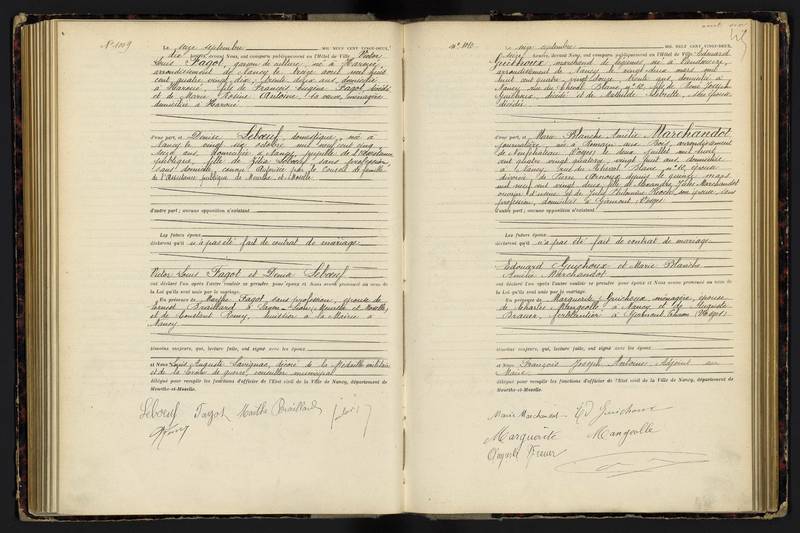 N° 1009
Le seize septembre MIL NEUF CENT VINGT-DEUX,
dix heures, devant Nous, ont comparu publiquement en l'Hôtel de Ville Victor
Louis Fagot, garçon de culture, né à Haroué,
arrondissement de Nancy le treize août mil huit
cent quatre vingt dix, trente deux ans, domicilié
à Haroué, fils de François Eugène Fagot, décédé
et de Marie Rosine Antoine, sa veuve, ménagère
domiciliée à Haroué.
d'une part, et Denise Lebœuf, domestique, née à
Nancy le vingt six octobre mil neuf cent cinq,
seize ans, domiciliée à Nancy, pupille de l'Assistance
publique, fille de Lebœuf, sans profession,
sans domicile connu. Autorisée par le Conseil de famille
de l'Assistance publique de Meurthe et Moselle.
d'autre part ; aucune opposition n'existant
Les futurs époux
déclarent qu'il n'a pas été fait de contrat de mariage.
Victor Louis Fagot et Denise Lebœuf
ont déclaré l'un après l'autre vouloir se prendre pour époux et Nous avons prononcé au nom de
la Loi qu'ils sont unis par le mariage.
En présence de Marthe Fagot, sans profession, épouse de
Ernest Braillard, à (Meurthe et Moselle)
et de Constant Rémy, à la Mairie à
Nancy
témoins majeurs, qui, lecture faite, ont signé avec les époux
et Nous Louis Auguste Savignac, décoré de la Médaille militaire
et de la Croix de guerre, conseiller municipal
délégué pour remplir les fonctions d'officier de l'Etat civil de la Ville de Nancy, département de
Meurthe-et-Moselle.
Lebœuf Fagot Marthe Braillard
Rémy
N° 1010
Le seize septembre MIL NEUF CENT VINGT-DEUX,
heures, devant Nous, ont comparu publiquement en l'Hôtel de Ville Edouard
Guichoux, marchand de légumes, né à Vandœuvre,
arrondissement de Nancy le vingt deux mars mil
huit cent quatre vingt douze, trente ans, domicilié à
Nancy, rue du Cheval Blanc n° 10, fils de Joseph
Guichoux, décédé et de Mathilde, son épouse
décédée.
d'une part, et Marie Blanche Amélie Marchandot
journalière, née à aux Bois, arrondissement
de Neufchâteau (Vosges) le deux juillet mil huit
cent quatre vingt quatorze, vingt huit ans, domiciliée
à Nancy, rue du Cheval Blanc n° 10, épouse
divorcée de Pierre depuis le quinze mars
mil neuf cent vingt deux, fille de Alexandre Jules Marchandot
ouvrier d'usine et de son épouse, sans
profession, domiciliés à Vosges
d'autre part ; aucune opposition n'existant
Les futurs époux
déclarent qu'il n'a pas été fait de contrat de mariage.
Edouard Guichoux et Marie Blanche
Amélie Marchandot
ont déclaré l'un après l'autre vouloir se prendre pour époux et Nous avons prononcé au nom de
la Loi qu'ils sont unis par le mariage.
En présence de Marguerite Guichoux, ménagère, épouse
de Charles Mangeolle, à Nancy et de Auguste
ferblantier à (Vosges)
témoins majeurs, qui, lecture faite, ont signé avec les époux
et Nous François Joseph Antoine, Adjoint au
Maire
délégué pour remplir les fonctions d'officier de l'Etat civil de la Ville de Nancy, département de
Meurthe-et-Moselle.
Marie Marchandot Ed Guichoux
Marguerite Mangeolle
Auguste